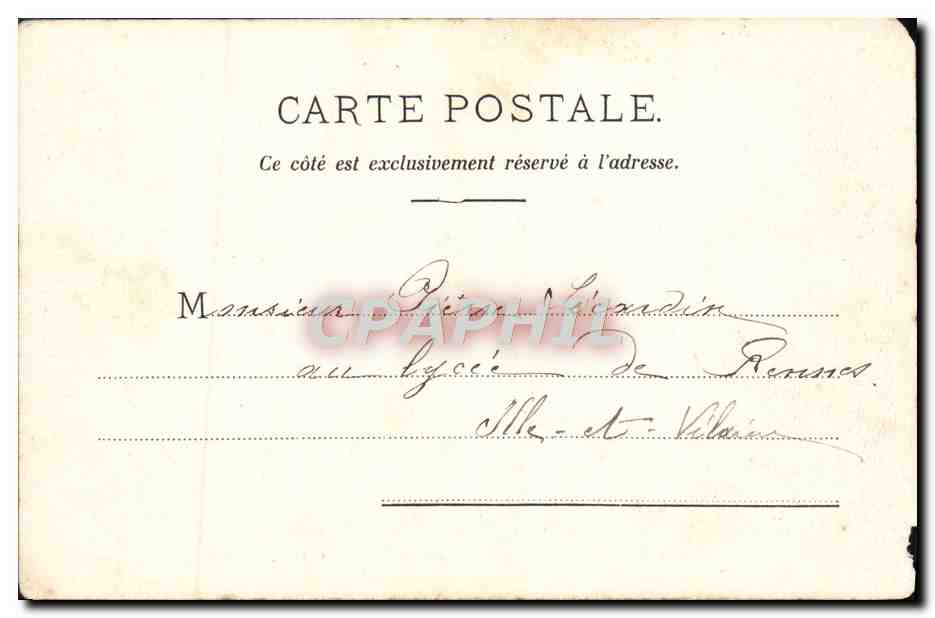 CARTE POSTALE.
Ce côté est exclusivement réservé à l'adresse.
Monsieur Pierre
CPAPHIL
au lycée de Rennes
Ille-et-Vilaine